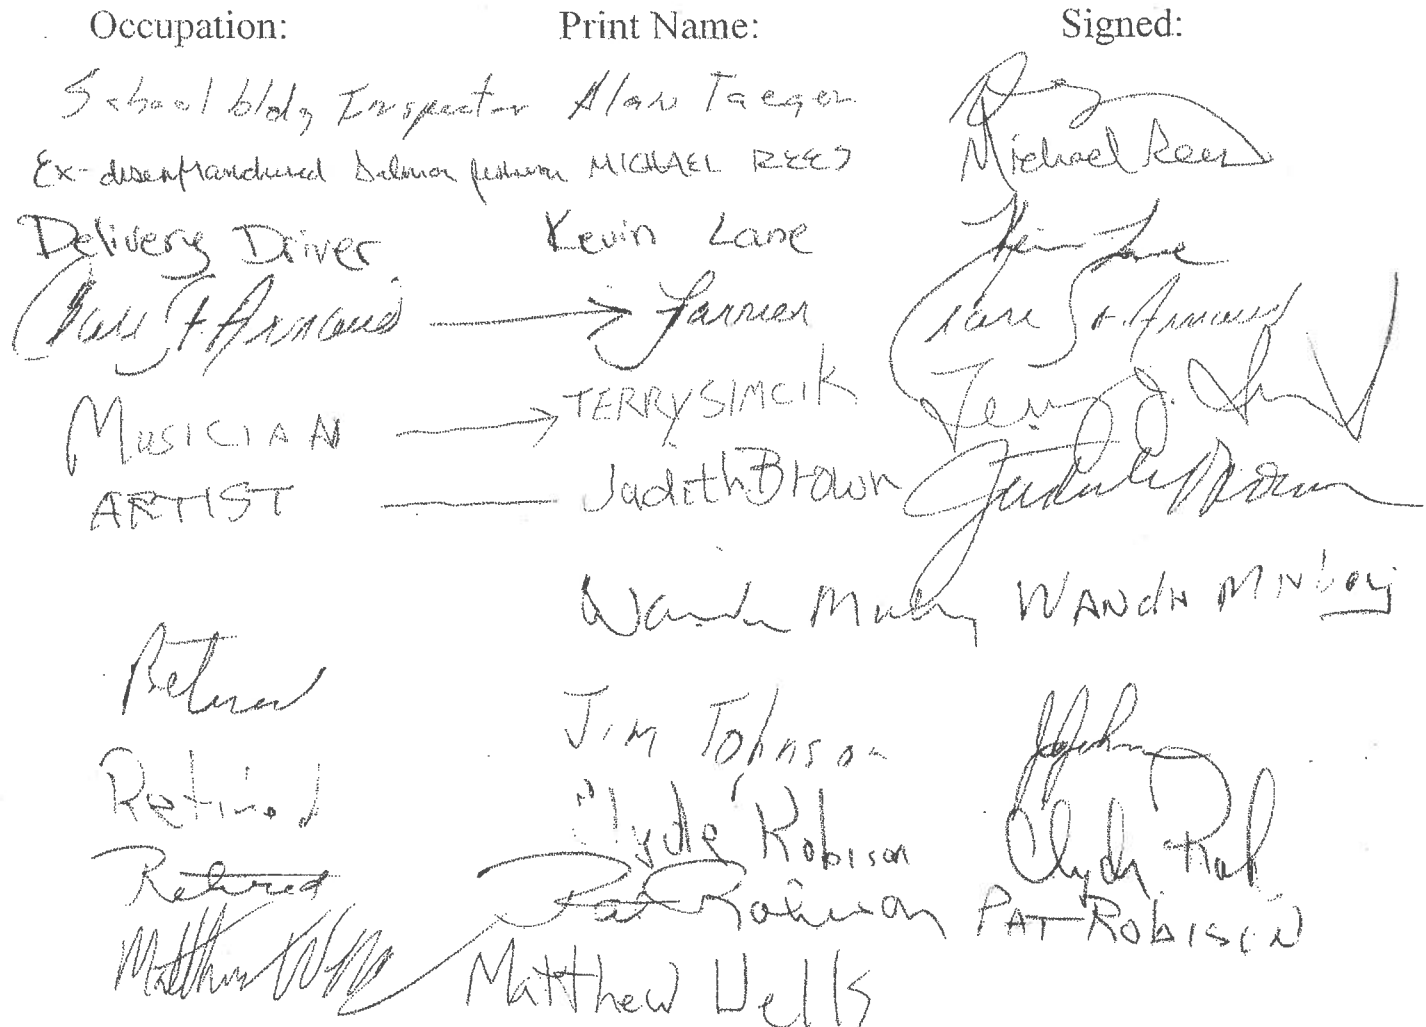 Occupation: Print Name: Signed:
School bldg Inspector Alan Taeger
Ex-disenfranchised Salmon fisherm MICHAEL REES Michael Rees
Delivery Driver Kevin Lane Kevin Lane
St Arnaud Farmer St Arnaud
MUSICIAN TERRY SIMCIK Terry J.
ARTIST Judith Brown Judith Brown
Wanda WANDA
Retired Jim Johnson
Retired Clyde Robison Clyde Rob
Retired Pat Robison PAT ROBISON
Matthew Matthew Wells